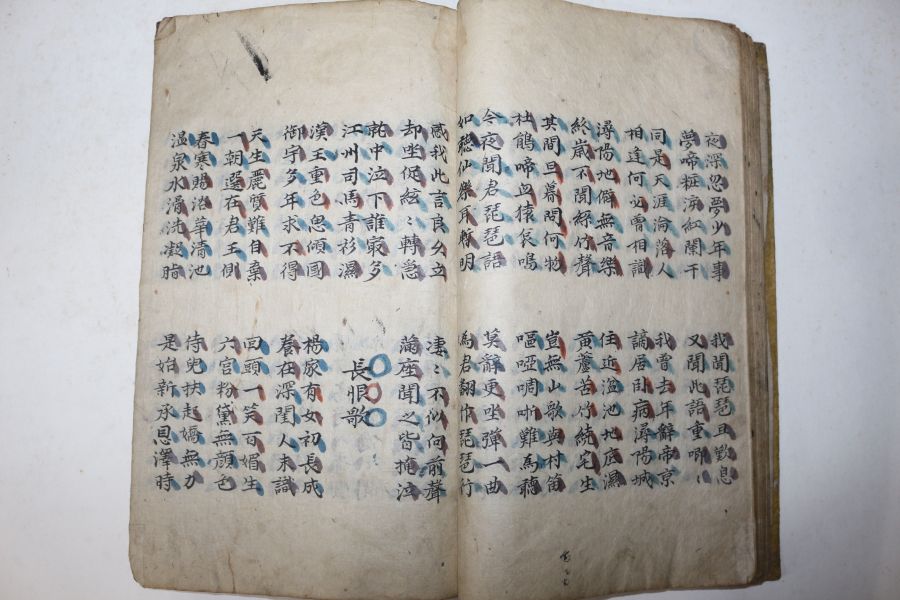 夜深忽夢少年事
夢啼粧淚紅闌干
我聞琵琶旦歎息
又聞此語重唧〻
同是天涯淪落人
相逢何必曾相識
我曾去年辭帝京
謫居卧病潯陽城
潯陽地僻無音樂
終歲不聞絲竹聲
住近湓池地底濕
黃蘆苦竹繞宅生
其間旦暮聞何物
杜鵑啼血猿哀鳴
豈無山歌與村笛
嘔啞啁哳難爲聽
今夜聞君琵琶語
如聽仙樂耳暫明
莫辭更坐彈一曲
爲君翻作琵琶行
感我此言良久立
却坐促絃〻轉急
凄〻不似向前聲
滿座聞之皆掩泣
就中泣下誰最多
江州司馬青衫濕
長恨歌
漢王重色思傾國
御宇多年求不得
楊家有女初長成
養在深閨人未識
天生麗質難自棄
一朝選在君王側
回頭一笑百媚生
六宮粉黛無顏色
春寒賜浴華清池
温泉水滑洗凝脂
侍兒扶起嬌無力
是始新承恩澤時